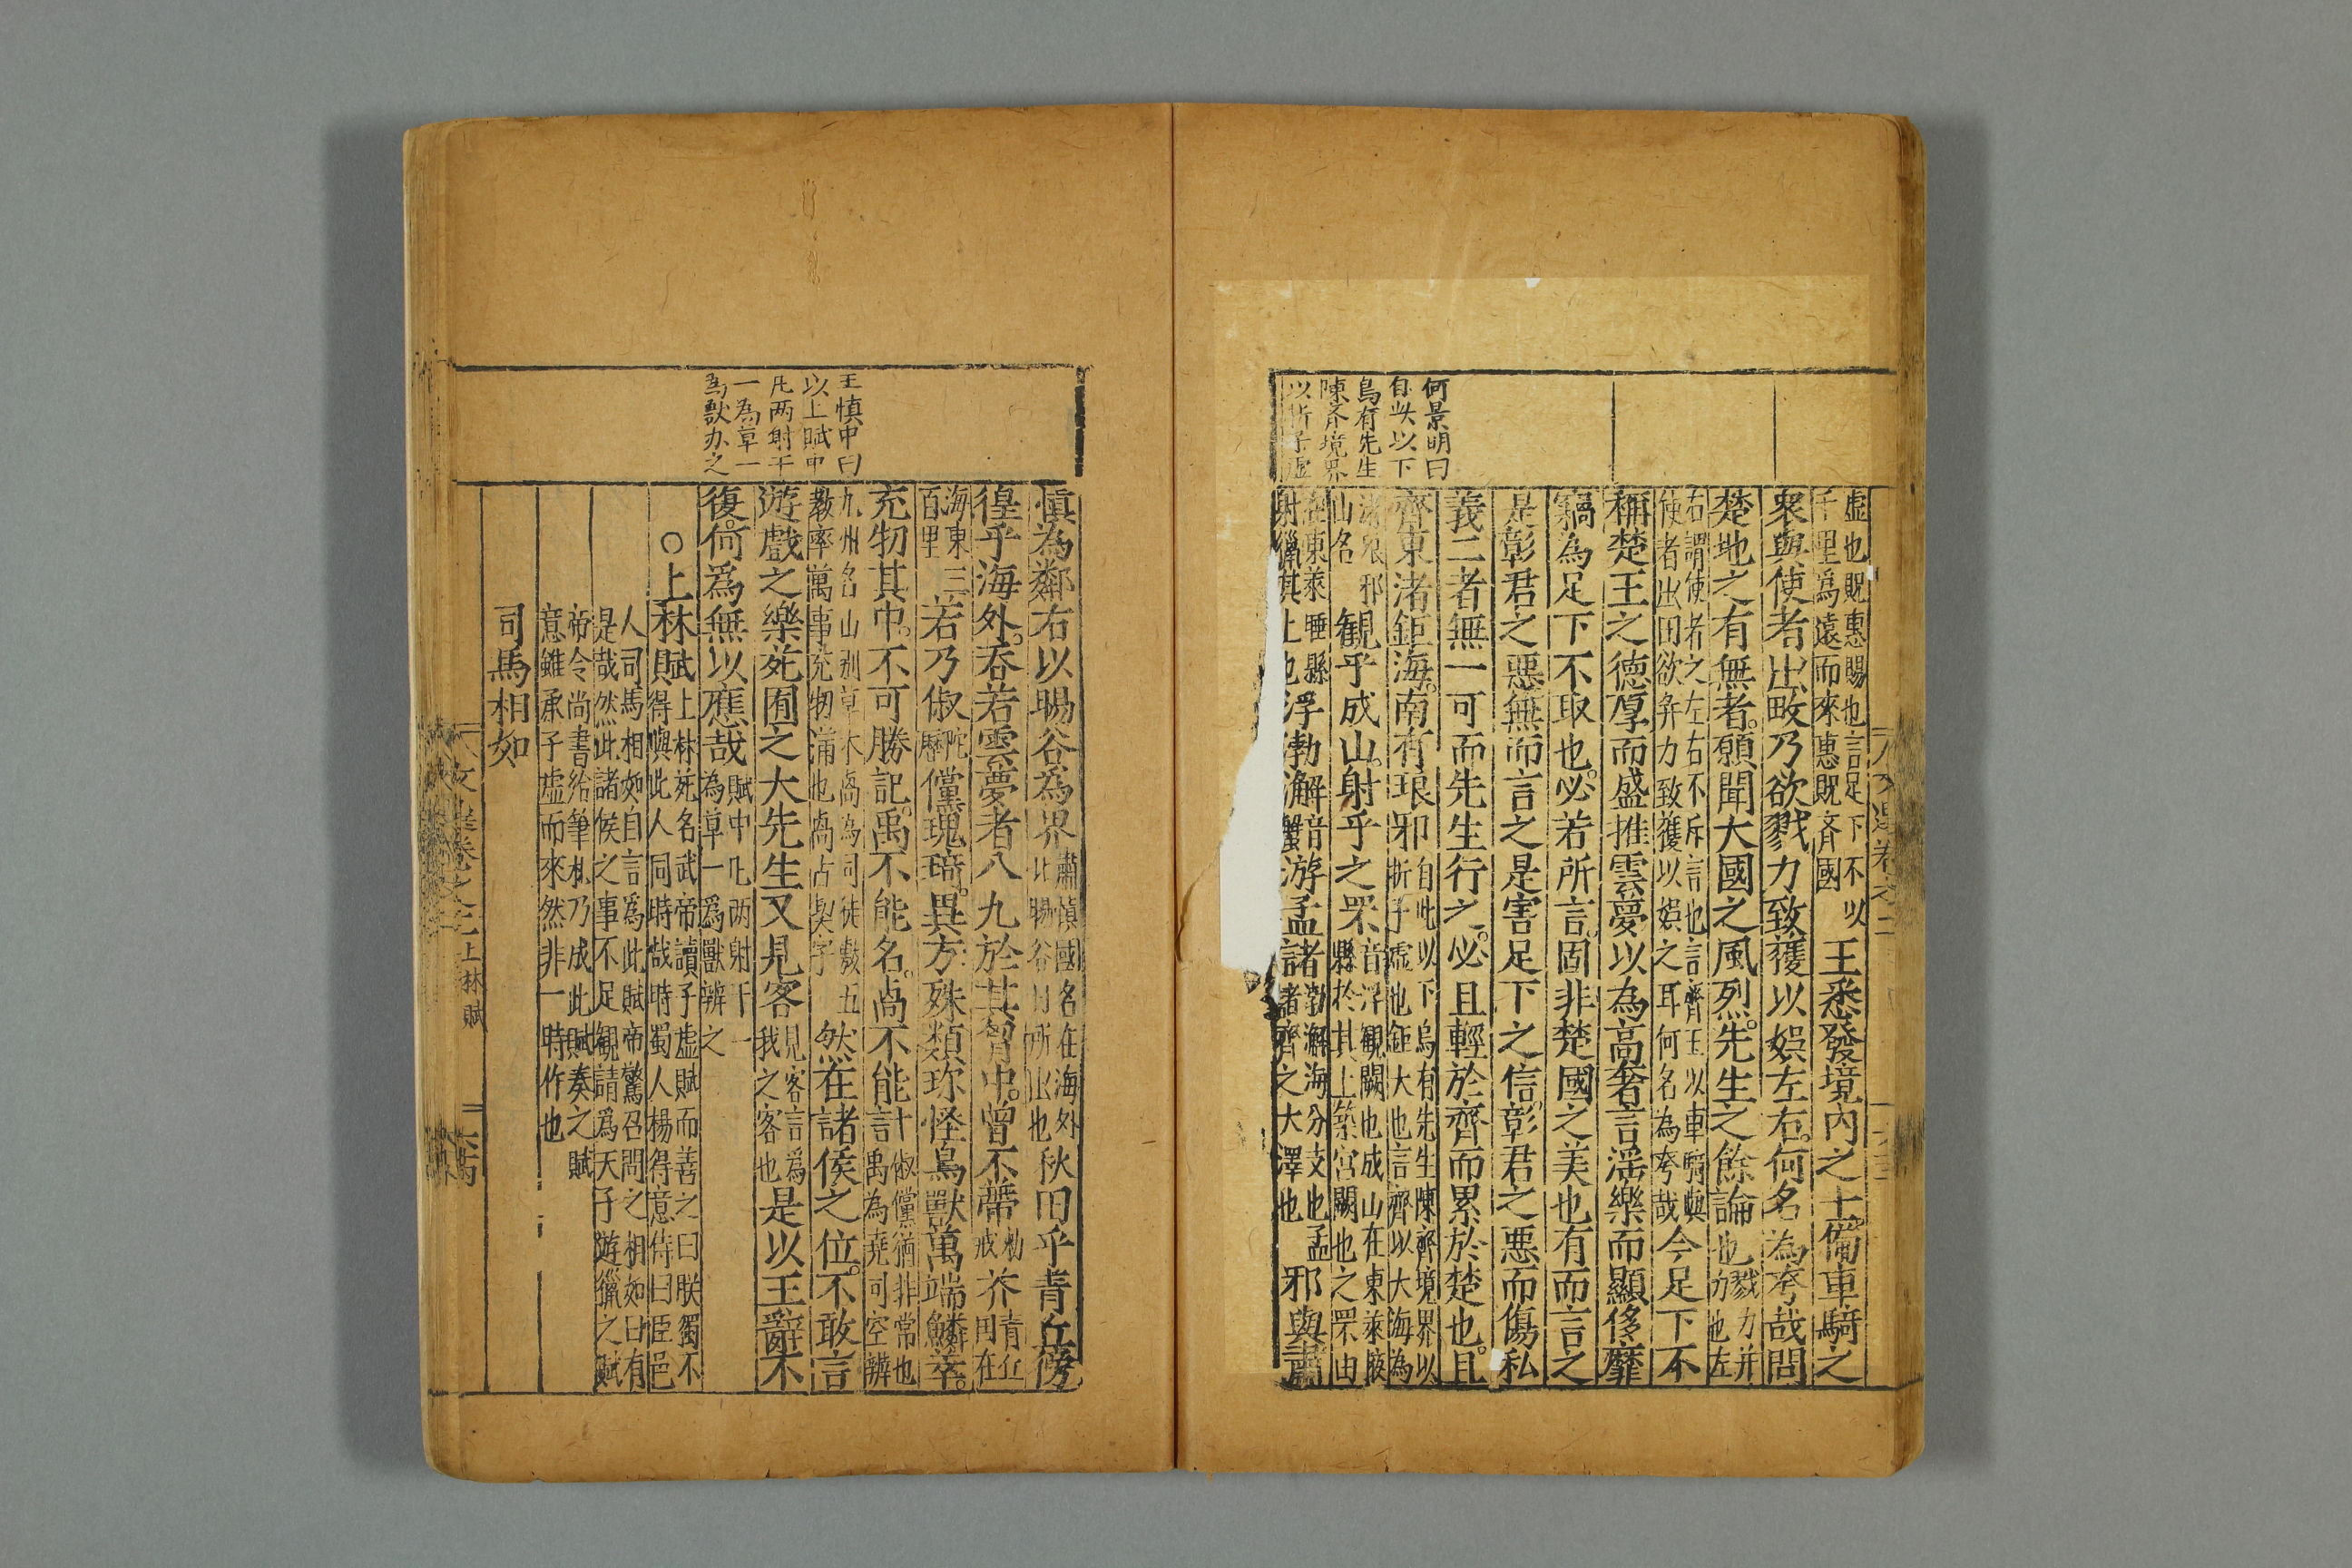 何景明曰
自此以下
烏有先生
陳齊境界
以折子虛
虛也貺惠賜也言足下不以
千里爲遠而來惠貺齊國
王悉發境內之士備車騎之
衆與使者出畋乃欲戮力致獲以娯左右何名為夸哉問
楚地之有無者願聞大國之風烈先生之餘論也
戮力并
力也左
右謂使者之左右不斥言也言齊王以車騎與
使者出田欲并力致獲以娯之耳何名為夸哉
今足下不
稱楚王之德厚而盛推雲夢以為高奢言淫樂而顯侈靡
竊為足下不取也必若所言固非楚國之美也有而言之
是彰君之惡無而言之是害足下之信彰君之惡而傷私
義二者無一可而先生行之必且輕於齊而累於楚也且
齊東渚鉅海南有琅邪
自此以下烏有先生陳齊境界以
折子虛也鉅大也言齊以大海為
渚琅邪
山名
觀乎成山射乎之罘
音浮觀闕也成山在東萊腄
縣於其上築宮闕也之罘山
在東萊腄縣
射獵其上也
浮渤澥
音
蟹
游孟諸
渤澥海分支也孟
諸齊之大澤也
邪與肅
文選卷之二
王慎中曰
以上賦中
凡两射干
一為草一
為獸办之
慎為鄰右以暘谷爲界
肅慎國名在海外
比暘谷日所出也
秋田乎青丘徬
徨乎海外吞若雲夢者八九於其智中曾不蔕
杮
戒
芥
青丘
國在
海東三
百里
若乃俶
陀
厯
儻瑰琦異方殊類珎怪鳥獸萬端鱗萃
充牣其巾不可勝記禹不能名卨不能計
俶儻猶非常也
禹為堯司空辨
九州名山别草木卨為司徒敷五
教率萬事充牣滿也卨占契字
然在諸侯之位不敢言
遊戲之樂苑囿之大先生又見客
見客言爲
我之客也
是以王辭不
復何爲無以應哉
賦中凡两射干一
為草一爲獸辨之
○上林賦
上林苑名武帝讀子虛賦而善之曰朕獨不
得與此人同時哉時蜀人楊得意侍曰臣邑
人司馬相如自言為此賦帝驚召問之相如曰有
是哉然此諸候之事不足觀請爲天子遊獵之賦
帝令尚書給筆札乃成此賦奏之賦
意雖承子虛而來然非一時作也
司馬相如
文選卷之二
上林賦